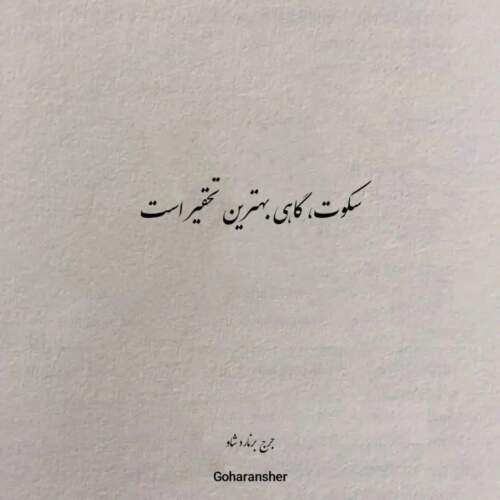 سکوت، گاهی بهترین تحقیر است
جرج برنارد شاو
Goharansher